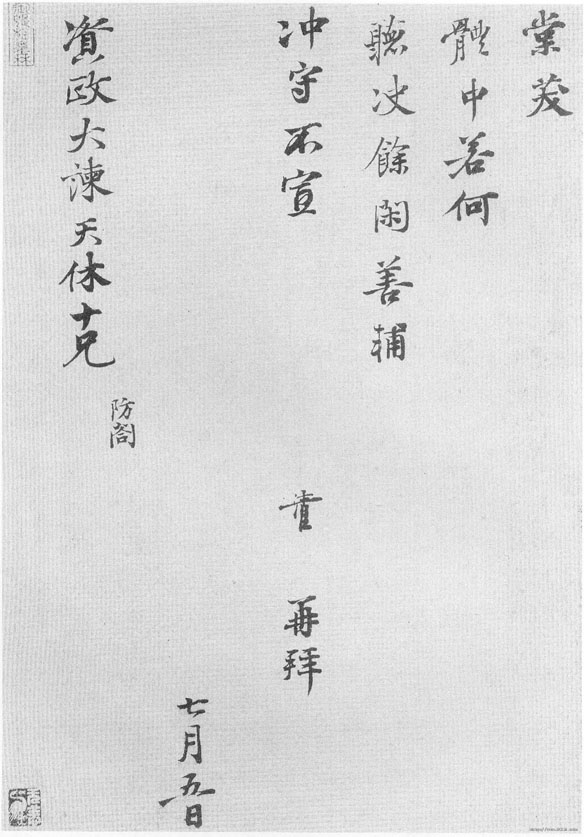 棠茇
體中若何
聽决餘閑善輔
冲守不宣 育 再拜
七月五日
資政大諫天休十兄
防閤